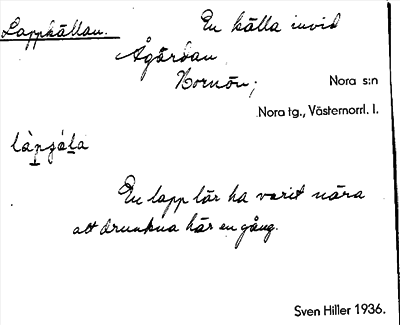 Lappkällan. En källa invid
Ågårdan
Hornön; Nora s:n
Nora tg., Västernorrl. l.
En lapp lär ha varit nära
att drunkna här en gång.
Sven Hiller 1936.